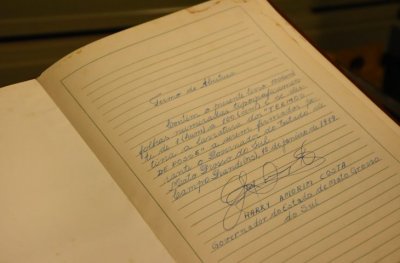 Termo de Abertura
Contém o presente livro, noventa
folhas numeradas tipograficamen
te de 1 (hum) a 100 (cem) e se des
tina a lavratura dos "TERMOS
DE POSSE" a serem firmados pe
rante o Governador do Estado de
Mato Grosso do Sul.
Campo Grande (MS), 1º de janeiro de 1979.
HARRY AMORIM COSTA
Governador do Estado de Mato Grosso
do Sul